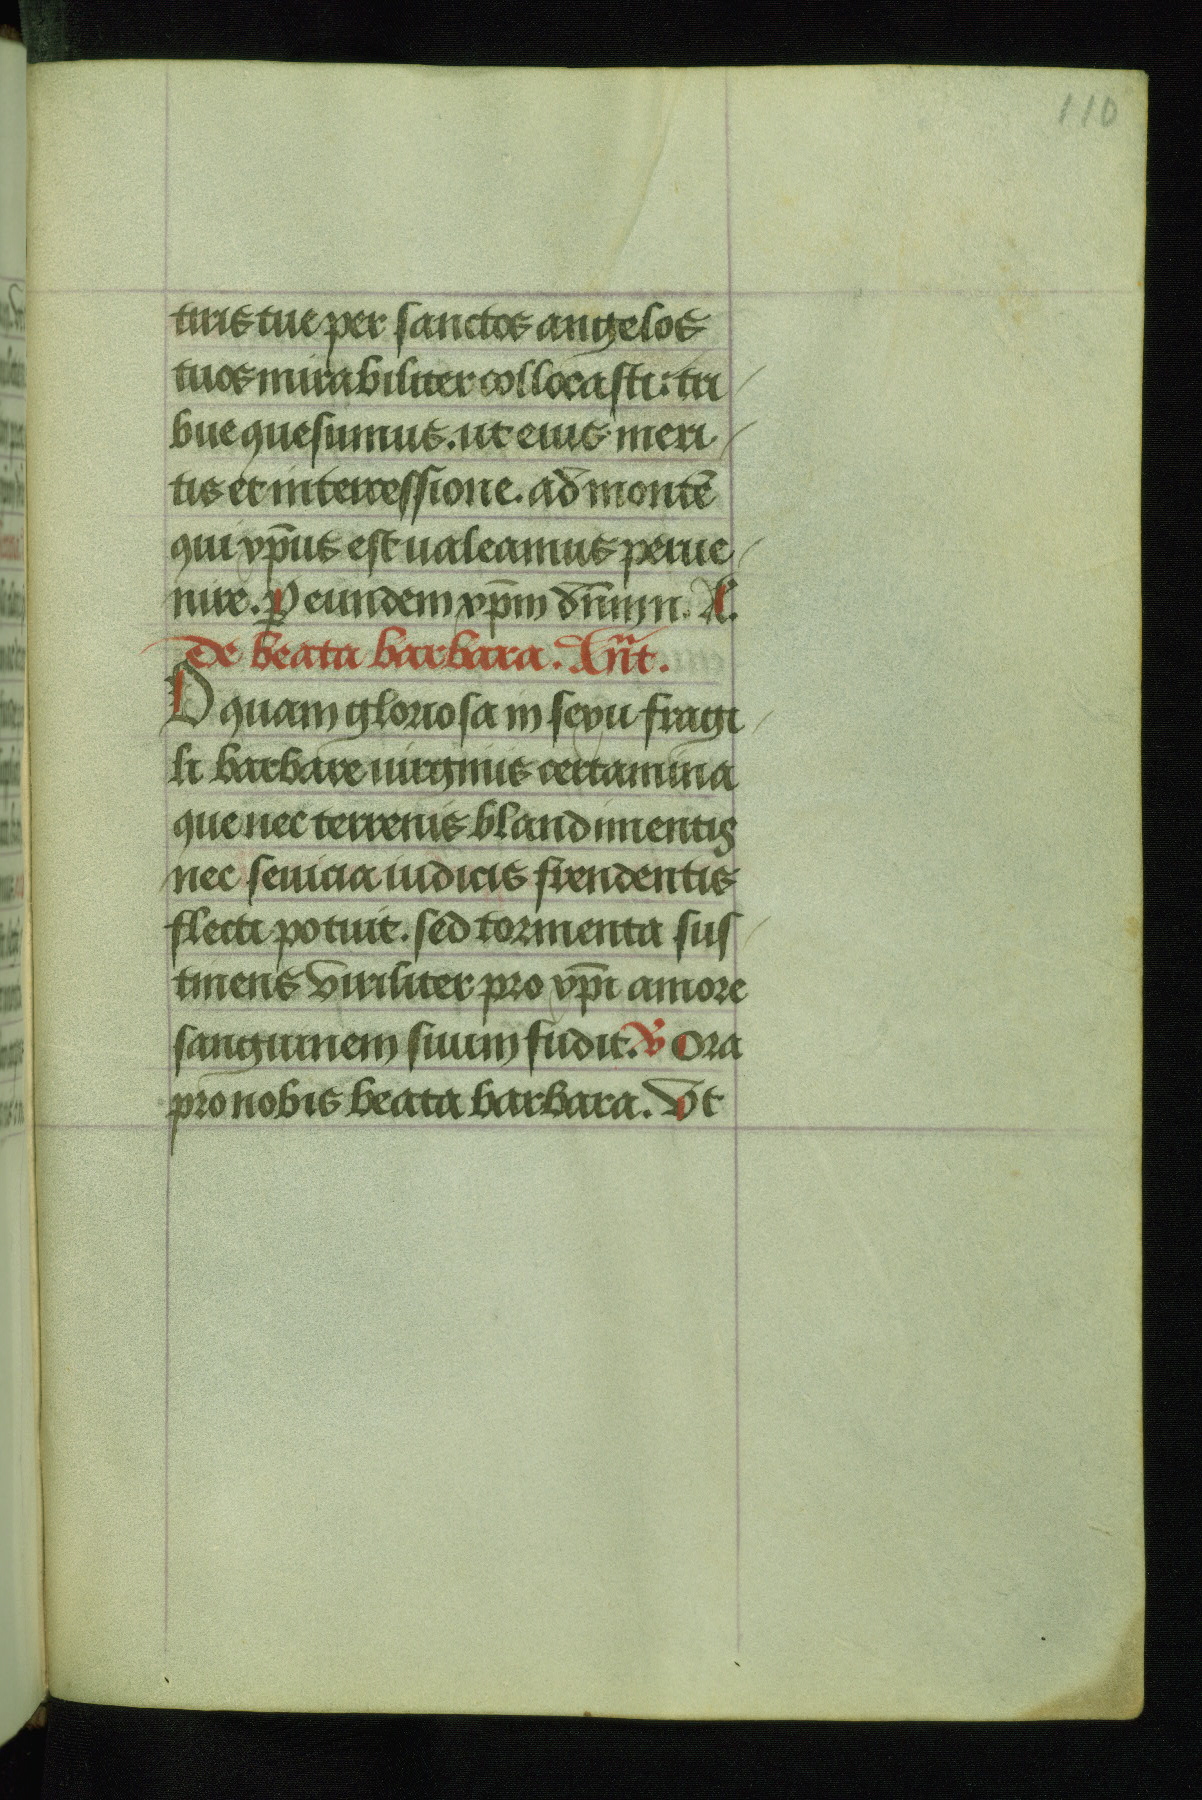 110
tiris tue per sanctos angelos
tuos mirabiliter collocasti: tri
bue quesumus. ut eius meri
tis et intercessione. ad montē
qui xp̄us est ualeamus perue
nire. P eundem xp̄m dn̄m n. A.
De beata barbara. An̄t.
O quam gloriosa in sexu fragi
li barbare uirginis certamina
que nec terrenis blandimentis
nec seuicia iudicis frendentis
flecti potuit. sed tormenta sus
tinens viriliter pro xp̄i amore
sanguinem suum fudit. V Ora
pro nobis beata barbara. Vt